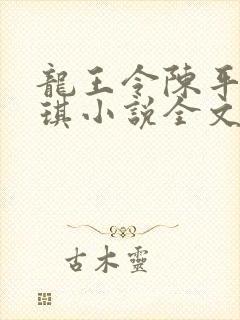 龍王令陳平
琪小說全文
古木靈